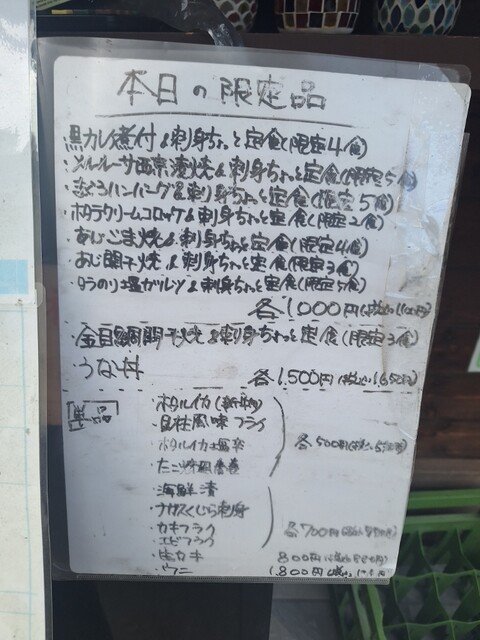 本日の限定品
黒カレイ煮付&刺身ちょっと定食(限定4食)
メルルーサ西京漬焼&刺身ちょっと定食(限定5食)
まぐろハンバーグ&刺身ちょっと定食(限定5食)
ホタテクリームコロッケ&刺身ちょっと定食(限定2食)
・あじごま焼&刺身ちょっと定食(限定4食)
・あじ開干焼&刺身ちょっと定食(限定3食)
・タラのり塩カツレツ&刺身ちょっと定食(限定5食)
各1,000円(税込1100円)
・金目鯛開干焼&刺身ちょっと定食(限定3食)
うな丼
各1,500円(税込1650円)
単品
・ホタルイカ
・貝柱風味フライ
・ホタルイカ塩辛
・たこ
各500円(税込550円)
・海鮮漬
・ナガスくじら刺身
・カキフライ
・エビフライ
各700円
・生カキ 800円(税込880円)
・ウニ 1,800円